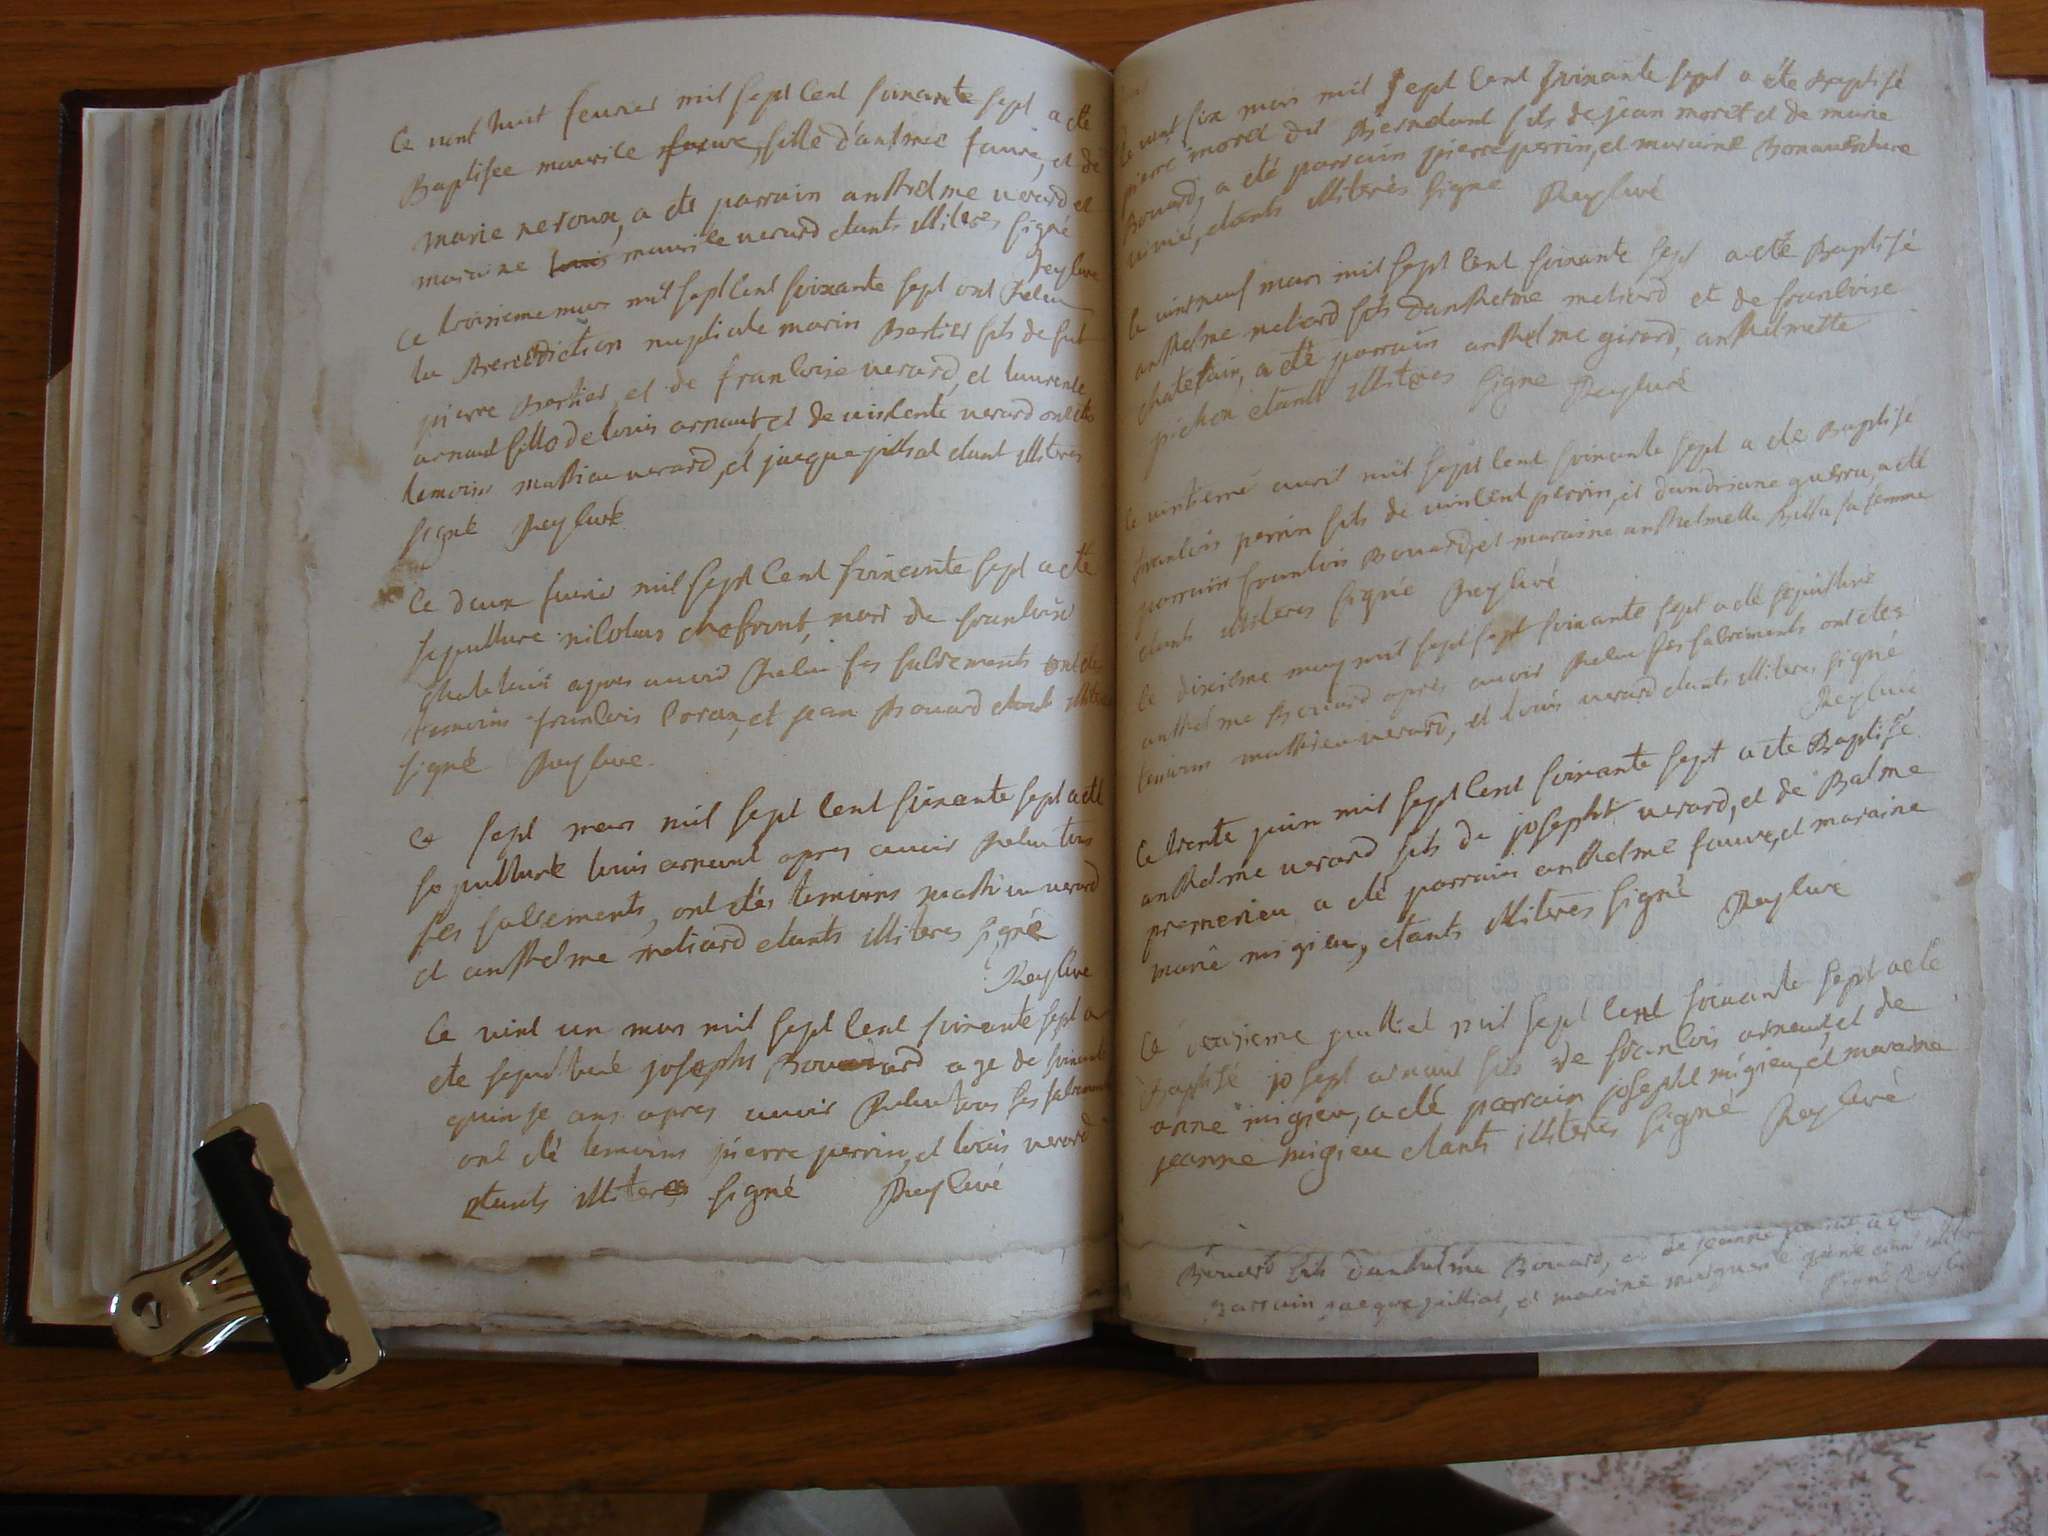 Ce vint huit feurier mil sept cent soixante sept a eté
Baptisée maurise faure, fille d'antme faure, et de
marie neroux, a eté parrain anthelme verard et
maraine maurise verard etants illiteres signé
Reyluve
Ce troisieme mars mil sept cent soixante sept ont Recu
la Benediction nuptiale marin Bertier fils de fut
pierre Bertier, et de francoise verard, et laurente
arnaud fille de louis arnaut et de vinsente verard ont etes
temoins mathieu verard, et jacque etant illiteres
signé Reyluvé
Ce deux feurier mil sept cent soixante sept a eté
sepulture nicolas chefront, mari de francoise
chatelain appres avoir Recu ses sacrements ont etes
temoins francois loran, et jean Bouard etant illiteres
signé Reyluve
Ce sept mars mil sept cent soixante sept a eté
sepulture louis arnaud apres avoir Recu tous
ses sacrements, ont etés temoins mathieu verard
et anthelme meliard etants illiteres signé
Reyluve
Ce vint un mars mil sept cent soixante sept a
ete sepulturé josephs Bouard age de soixante
quinse ans apres avoir Recu tous ses sacrements
ont eté temoins pierre perrin, et louis verard
etants illiteres signé Reyluvé
Ce vint six mars mil sept cent soixante sept a éte Baptisé
pierre moret dit fils de jean moret et de marie
Bouard, a eté parrain pierre perrin, et maraine Bonaventure
etants illiterés signe Reyluvé
Ce vint neuf mars mil sept cent soixante sept a eté Baptisé
anthelme meliard fils danthelme meliard et de francoise
chatelain, a eté parrain anthelme girard, anthelmette
pichon etants illiteres signe Reyluvé
Ce vintieme avril mil sept cent soixante sept a ete Baptisé
francois perrin fils de vincent perrin, et dandriane guerra, a eté
parrain francois Bouard, et maraine anthelmette Billa sa femme
etants illiteres signé Reyluvé
Ce dixieme may mil sept sept soixante sept a eté sepulturé
anthelme Bouard apres avoir Recu ses sacrements ont etes
temoins mathieu verard, et louis verard etants illiteres signé
Reyluvé
Ce trente juin mil sept cent soixante sept a ete Baptisé
anthelme verard fils de josepht verard, et de Balme
premerieu a eté parrain anthelme faure, et maraine
marie migieu, etants illiterés signé Reyluve
Ce juilliet mil sept cent soixante sept a eté
Baptisé josept arnaud fils de francois arnaud, et de
anne migieu, a eté parrain josepht migieu, et maraine
jeanne migieu etants illiteres signé Reyluvé
Bouard fils danthelme Bouard, et de jeanne a ete
parrain jacque juilliat, et maraine
signé